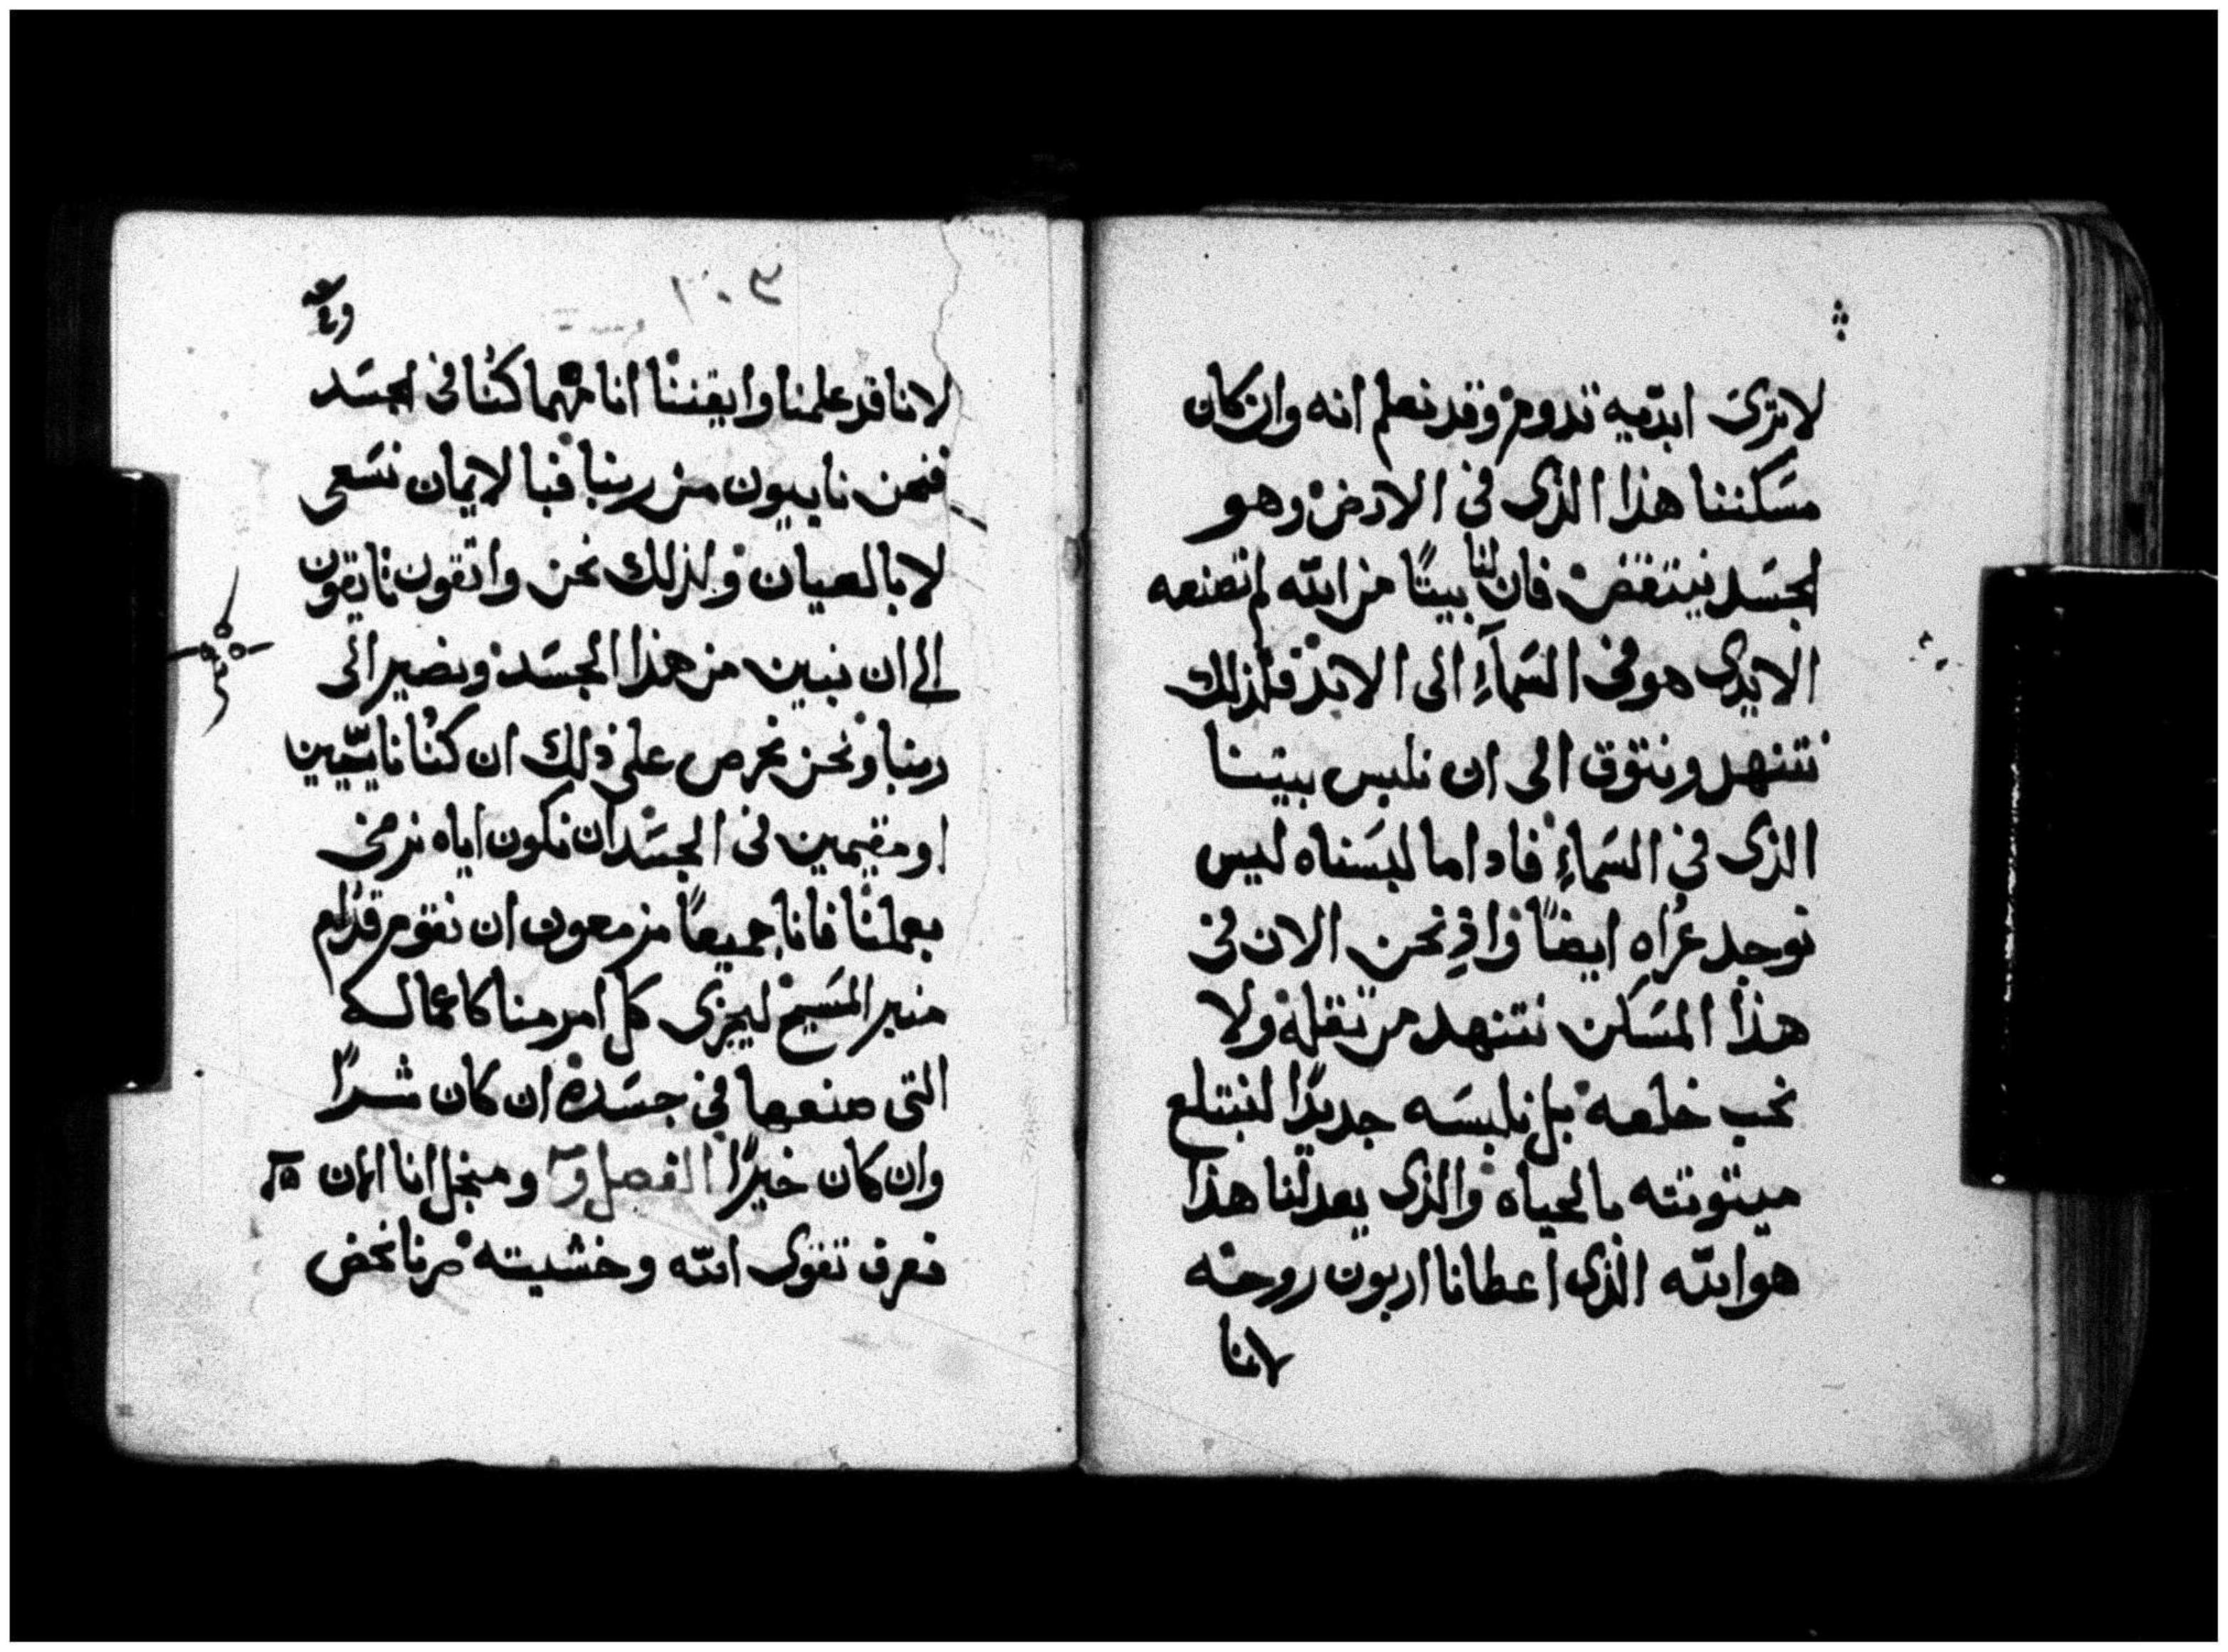 لاترى ابديه تدوم وقد نعلم انه وان كان
مسكننا هذا الذى فى الارض وهو
الجسد ينتقض فان لنا بيتًا من الله لم تصنعه
الايدى هو فى السمآءِ الى الابد فلذلك
نتنهد ونتوق الى ان نلبس بيتنا
الذى فى السماءِ فاد اما لبسناه ليس
نوجد عُراه ايضًا واذ نحن الان فى
هذا المسكن نتنهد من ثقله ولا
نحب خلعه بل نلبسه جديدًا لنبتلع
ميتوتته بالحياه والذى يعدلنا هذا
هو الله الذى اعطانا اربون روحه
لاننا
٢٠٣
لانا قد علمنا وايقننا انا مهما كنُا فى الجسد
فنحن نايبون من ربنا فبالايمان نسعى
لا بالعيان ولذلك نحن واثقون تايقون
الى ان نبين من هذا الجسد ونصير الى
ربنا ونحن نحرص على ذلك ان كنُا نايّبين
او مقيمين فى الجسد ان نكون اياه نرضى
بعملنا فانا جميعًا مزمعون ان نقوم قدام
منبر المسيح ليجزى كل امر منا كاعماله
التى صنعها فى جسده ان كان شرًا
وان كان خيرًا الفصل و ومنجل انا الان
نعرف تقوى الله وخشيته صرنا نحض